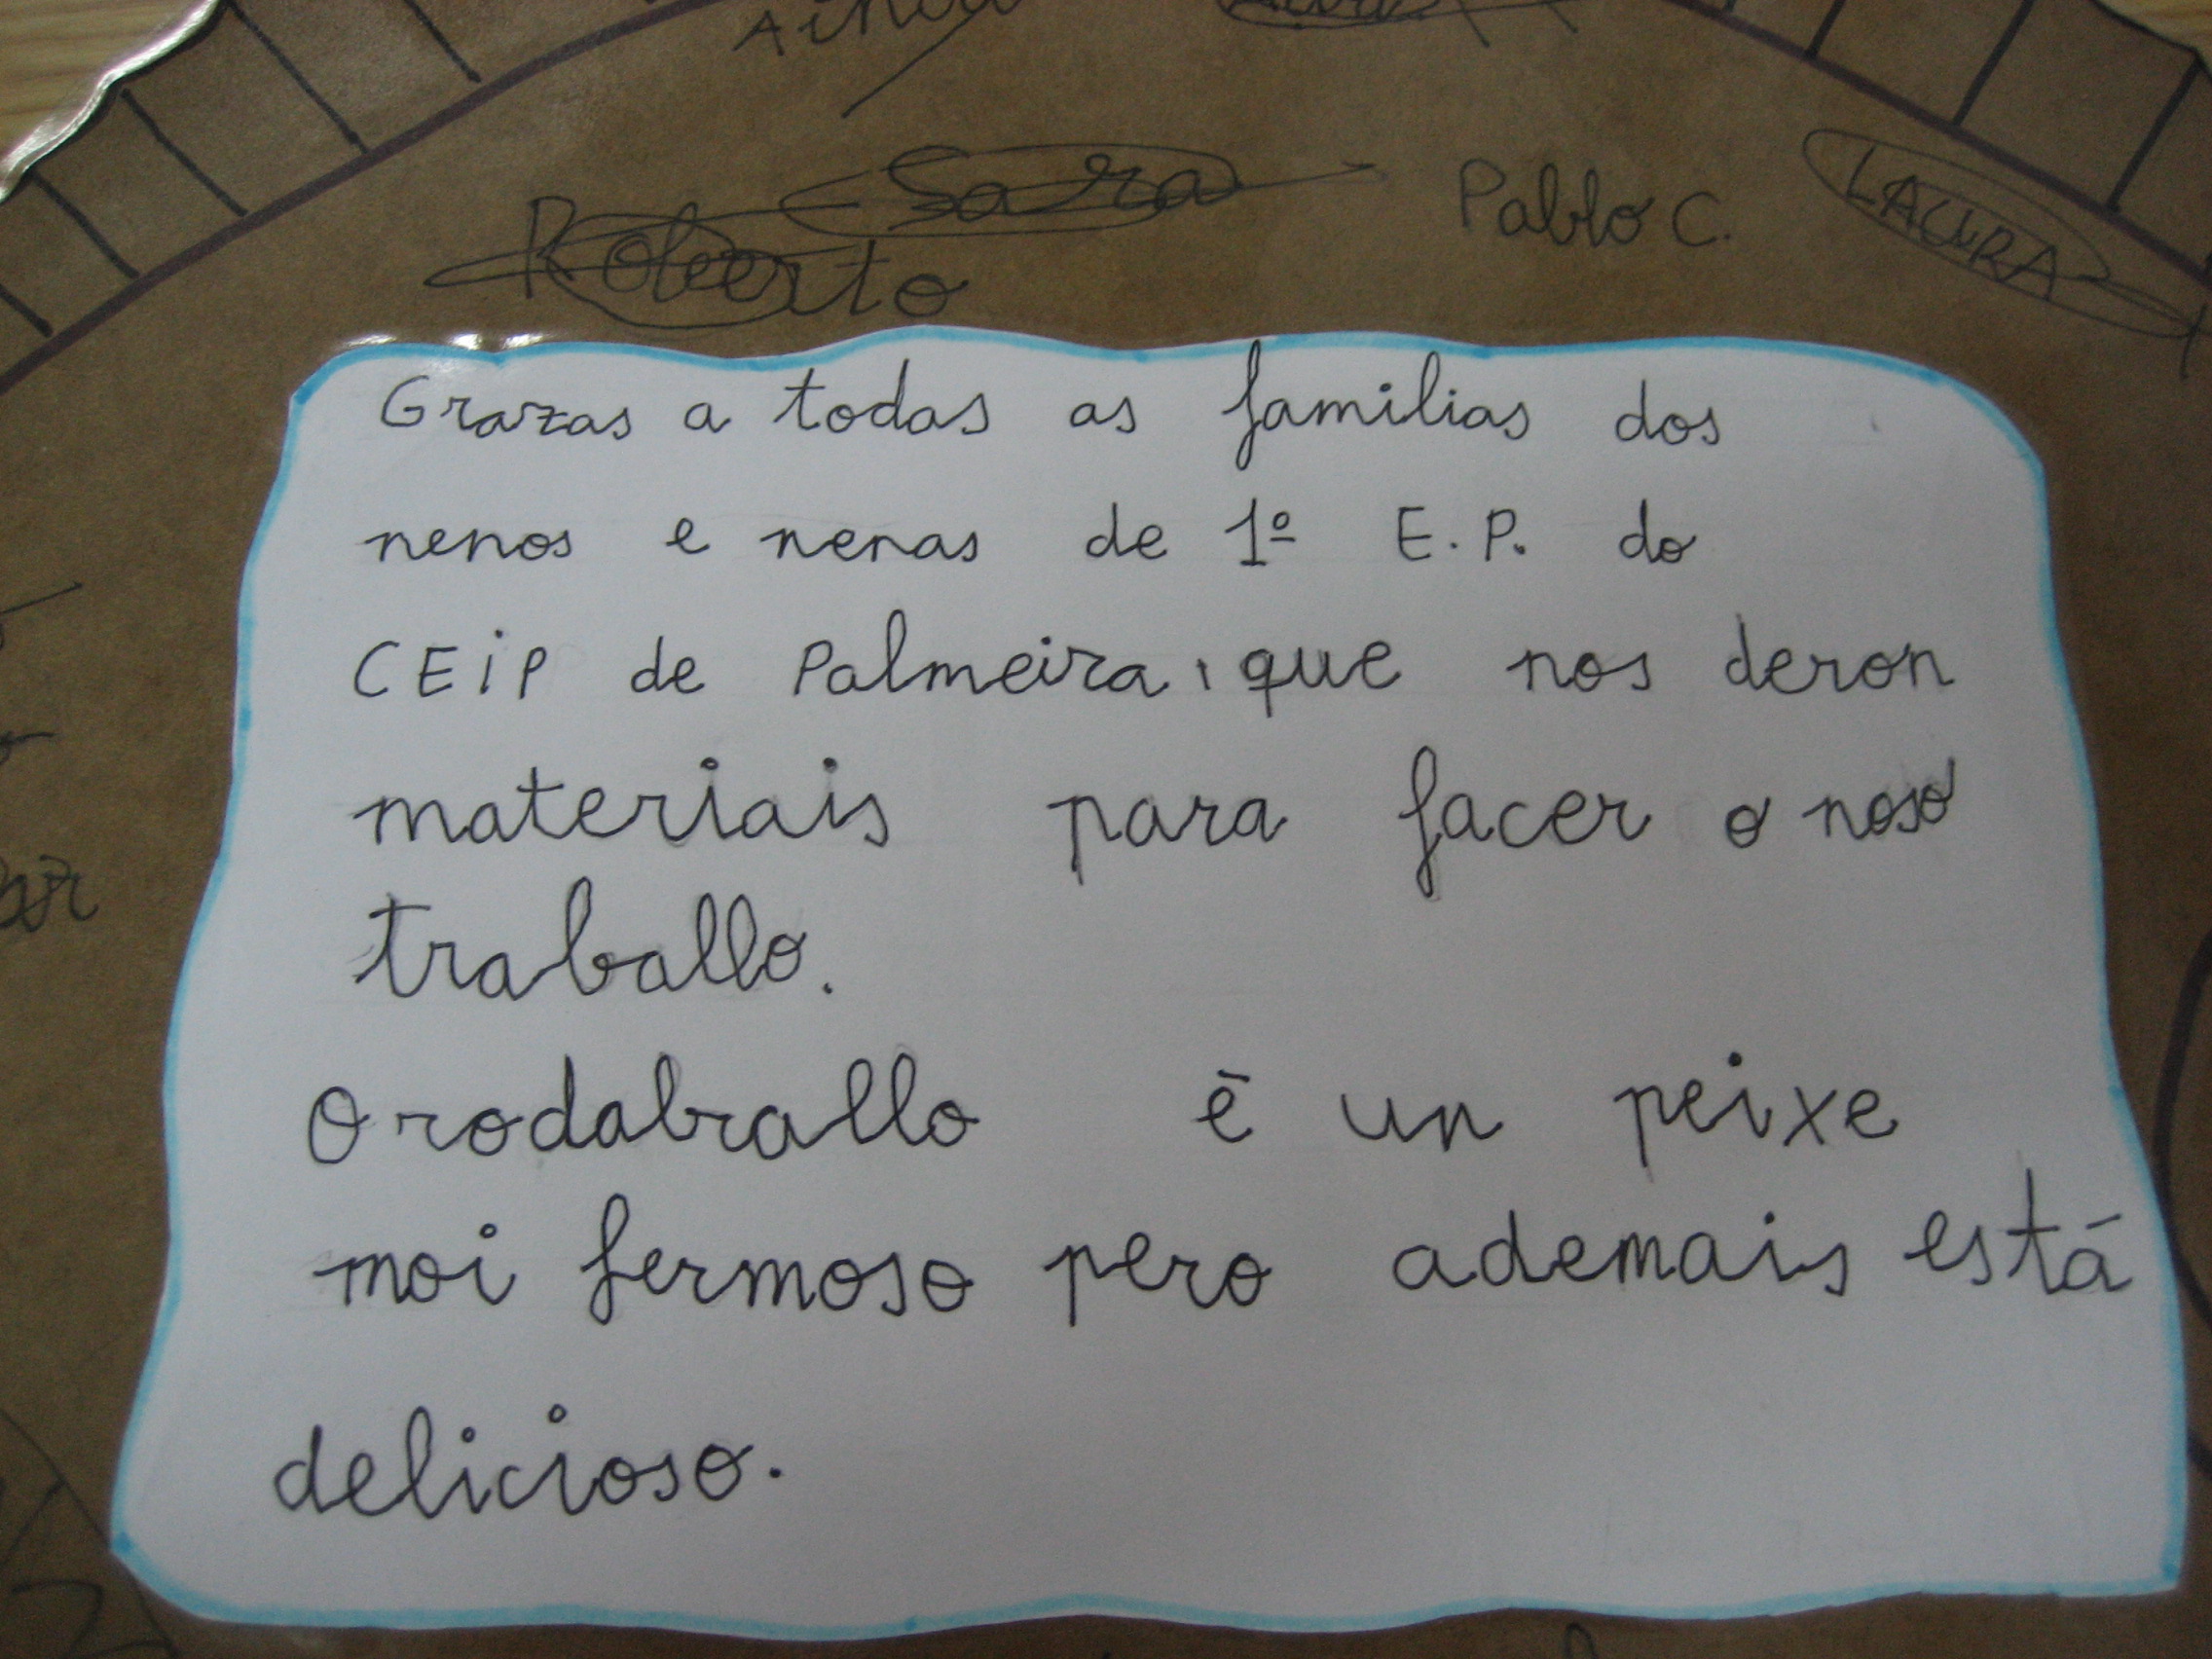 Sara
Pablo C.
LAURA
Roberto
Grazas a todas as familias dos
nenos e nenas de 1º E.P. do
CEiP de Palmeira, que nos deron
materiais para facer o noso
traballo.
O rodaballo é un peixe
moi fermoso pero ademais está
delicioso.